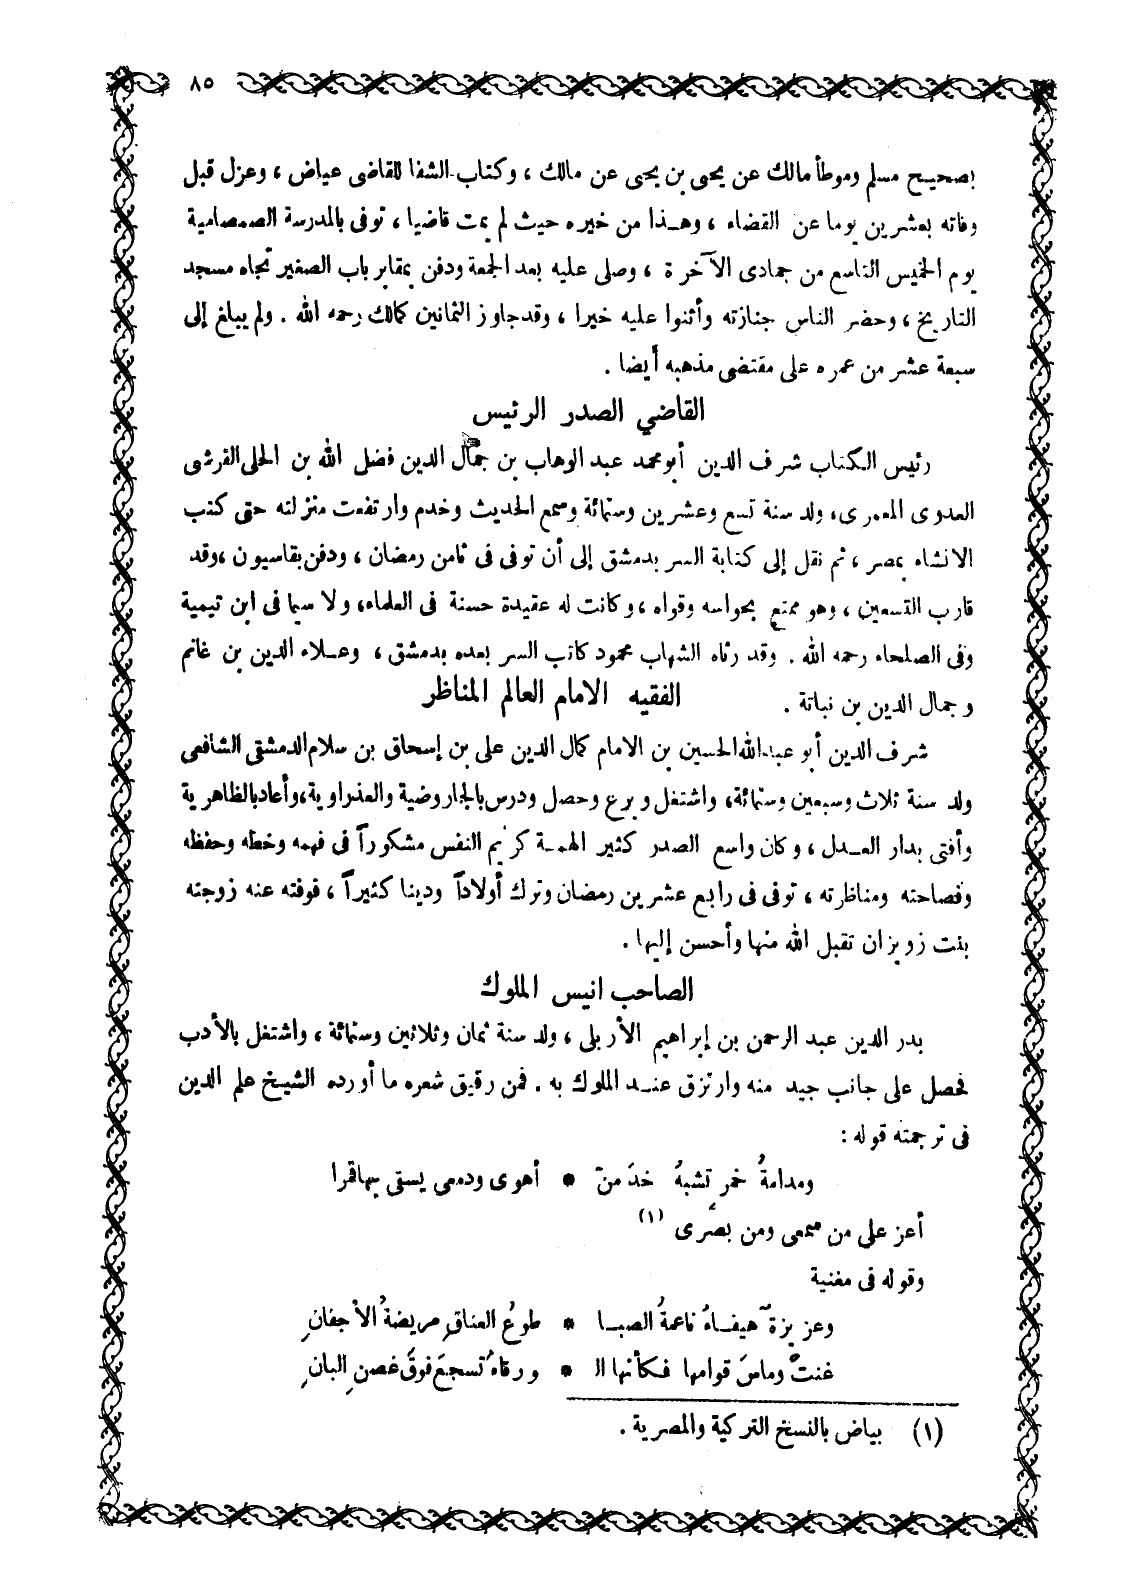 ٨٥
بصحيح مسلم وموطأ مالك عن يحيى بن يحيى عن مالك ، وكتاب الشفا للقاضى عياض ، وعزل قبل
وفاته بعشرين يوما عن القضاء ، وهذا من خيره حيث لم يمت قاضيا ، توفى بالمدرسة الصمصامية
يوم الخميس التاسع من جمادى الآخرة ، وصلى عليه بعد الجمعة ودفن بمقابر باب الصغير تجاه مسجد
التاريخ ، وحضر الناس جنازته وأثنوا عليه خيرا ، وقد جاوز الثمانين كمالك رحمه الله . ولم يبلغ إلى
سبعة عشر من عمره على مقتضى مذهبه أيضا .
القاضي الصدر الرئيس
رئيس الكتاب شرف الدين أبو محمد عبد الوهاب بن جمال الدين فضل الله بن الحلى القرشى
العدوى المعمرى، ولد سنة تسع وعشرين وستمائة وسمع الحديث وخدم وارتفعت منزلته حتى كتب
الانشاء بمصر ، ثم نقل إلى كتابة السر بدمشق إلى أن توفى فى ثامن رمضان ، ودفن بقاسيون ، وقد
قارب التسعين ، وهو ممتع بحواسه وقواه ، وكانت له عقيدة حسنة فى العلماء، ولا سيما فى ابن تيمية
وفى الصلحاء رحمه الله . وقد رثاه الشهاب محمود كاتب السر بعده بدمشق ، وعلاء الدين بن غانم
وجمال الدين بن نباتة .
الفقيه الامام العالم المناظر
شرف الدين أبو عبد الله الحسين بن الامام كمال الدين على بن إسحاق بن سلام الدمشقى الشافعى
ولد سنة ثلاث وسبعين وستمائة، واشتغل وبرع وحصل ودرس بالجاروضية والعذراوية، وأعاد بالظاهرية
وأفتى بدار العدل ، وكان واسع الصدر كثير الهمة كريم النفس مشكوراً فى فهمه وخطه وحفظه
وفصاحته ومناظرته ، توفى فى رابع عشرين رمضان وترك أولاداً ودينا كثيراً ، فوفته عنه زوجته
بنت زويزان تقبل الله منها وأحسن إليها .
الصاحب انيس الملوك
بدر الدين عبد الرحمن بن إبراهيم الأربلى ، ولد سنة ثمان وثلاثين وستمائة ، واشتغل بالأدب
فحصل على جانب جيد منه وارتزق عند الملوك به . فمن رقيق شعره ما أورده الشيخ علم الدين
فى ترجمته قوله :
ومدامةُ خمرٍ تشبهُ خدَ منّ * أهوى ودمعى يسقى بها قمرا
أعز على من سمعى ومن بصَرى (١)
وقوله فى مغنية
وعزيزة هيفاءُ ناعمةُ الصبا * طوعُ العناقِ مريضةُ الأجفانِ
غنتْ وماسَ قوامها فكأنها ال * ورقاءُ تسجعَ فوقَ غصنِ البانِ
(١) بياض بالنسخ التركية والمصرية .